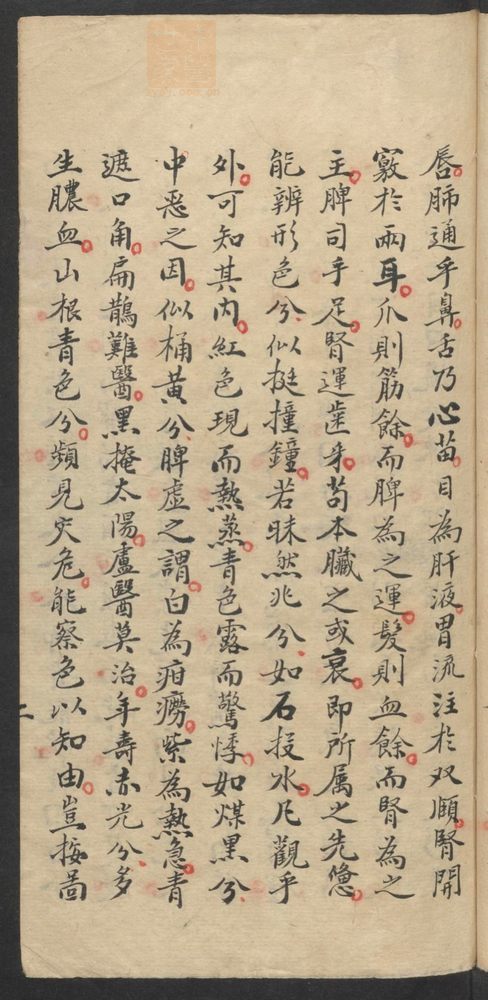 唇肺通乎鼻舌乃心苗目為肝液胃流注於双頤腎開
竅於両耳爪則筋餘而脾為之運髮則血餘而腎為之
主脾司手足腎運歯牙苟本臟之或衰即所属之先憊
能辨形色兮似挺撞鐘若昧然兆兮如石投水凡觀乎
外可知其内紅色現而熱蒸青色露而驚悸如煤黒兮
中惡之因似桶黄兮脾虚之謂白為疳癆紫為熱急青
遮口角扁鵲難醫黒掩太陽盧醫莫治年壽赤光兮多
生膿血山根青色兮頻見灾危能察色以知由豈按啚
二